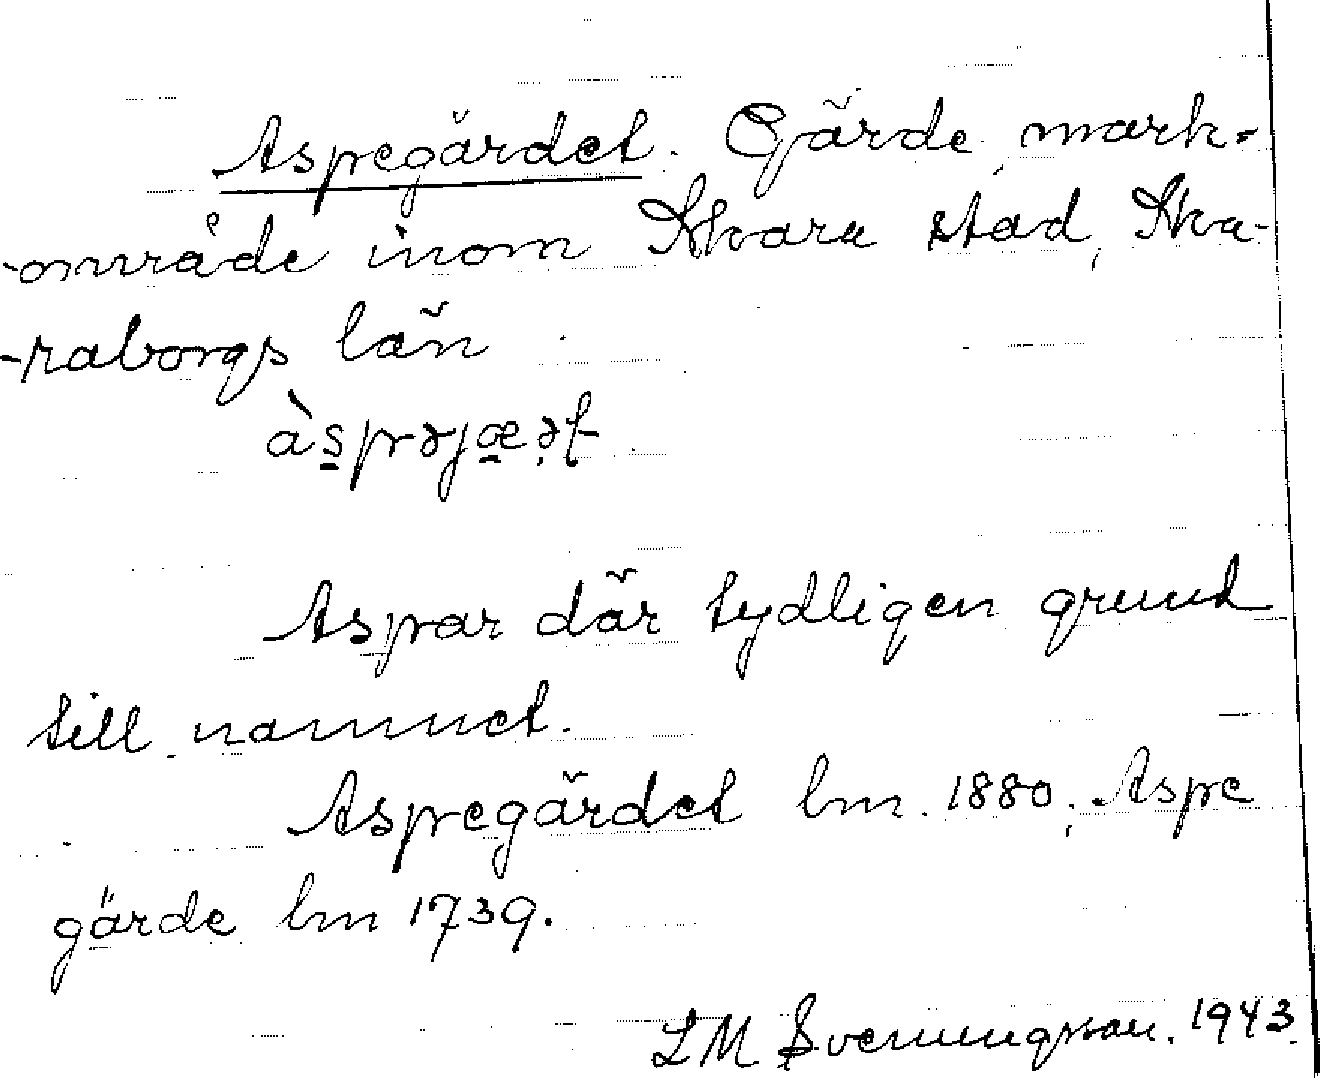 Aspegärdet. Gärde, mark-
-område inom Skara stad, Ska-
-raborgs län
àspəjæət
Aspar där tydligen grund
till namnet.
Aspegärdet lm. 1880; Aspe
gärde lm 1739.
LM Svenungsson. 1943.